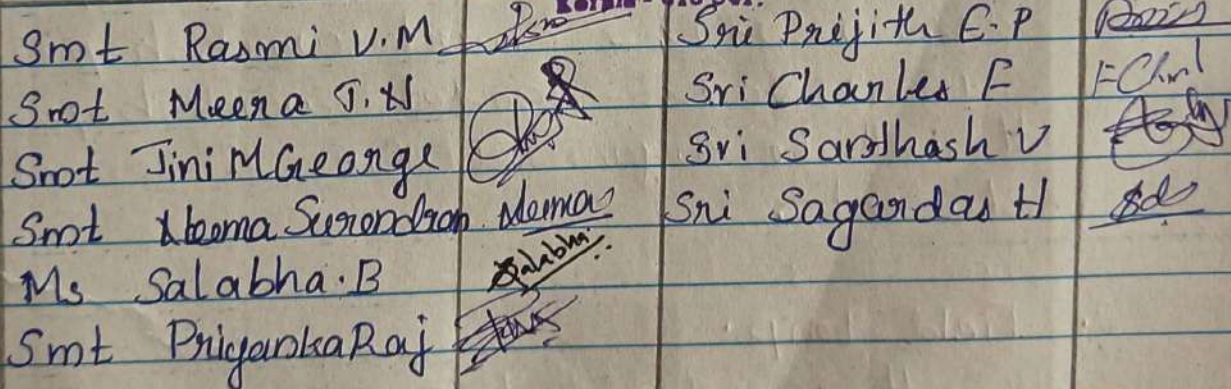 Smt Rasmi V.M Sri Prijith E.P
Smt Meera T.N Sri Charles F
Smt Jini M George Sri Santhosh V
Smt Neema Surendran Neema Sri Sagardas H
Ms Salabha.B Salabha
Smt Priyanka Raj